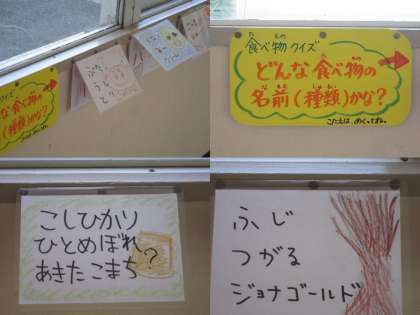 クイズ
な食べ物の
(種類)かな?
食べ物クイズ
どんな食べ物の
名前(種類)かな?
こたえは、めくってね。
こしひかり
ひとめぼれ
あきたこまち
?
ふじ
つがる
ジョナゴールド